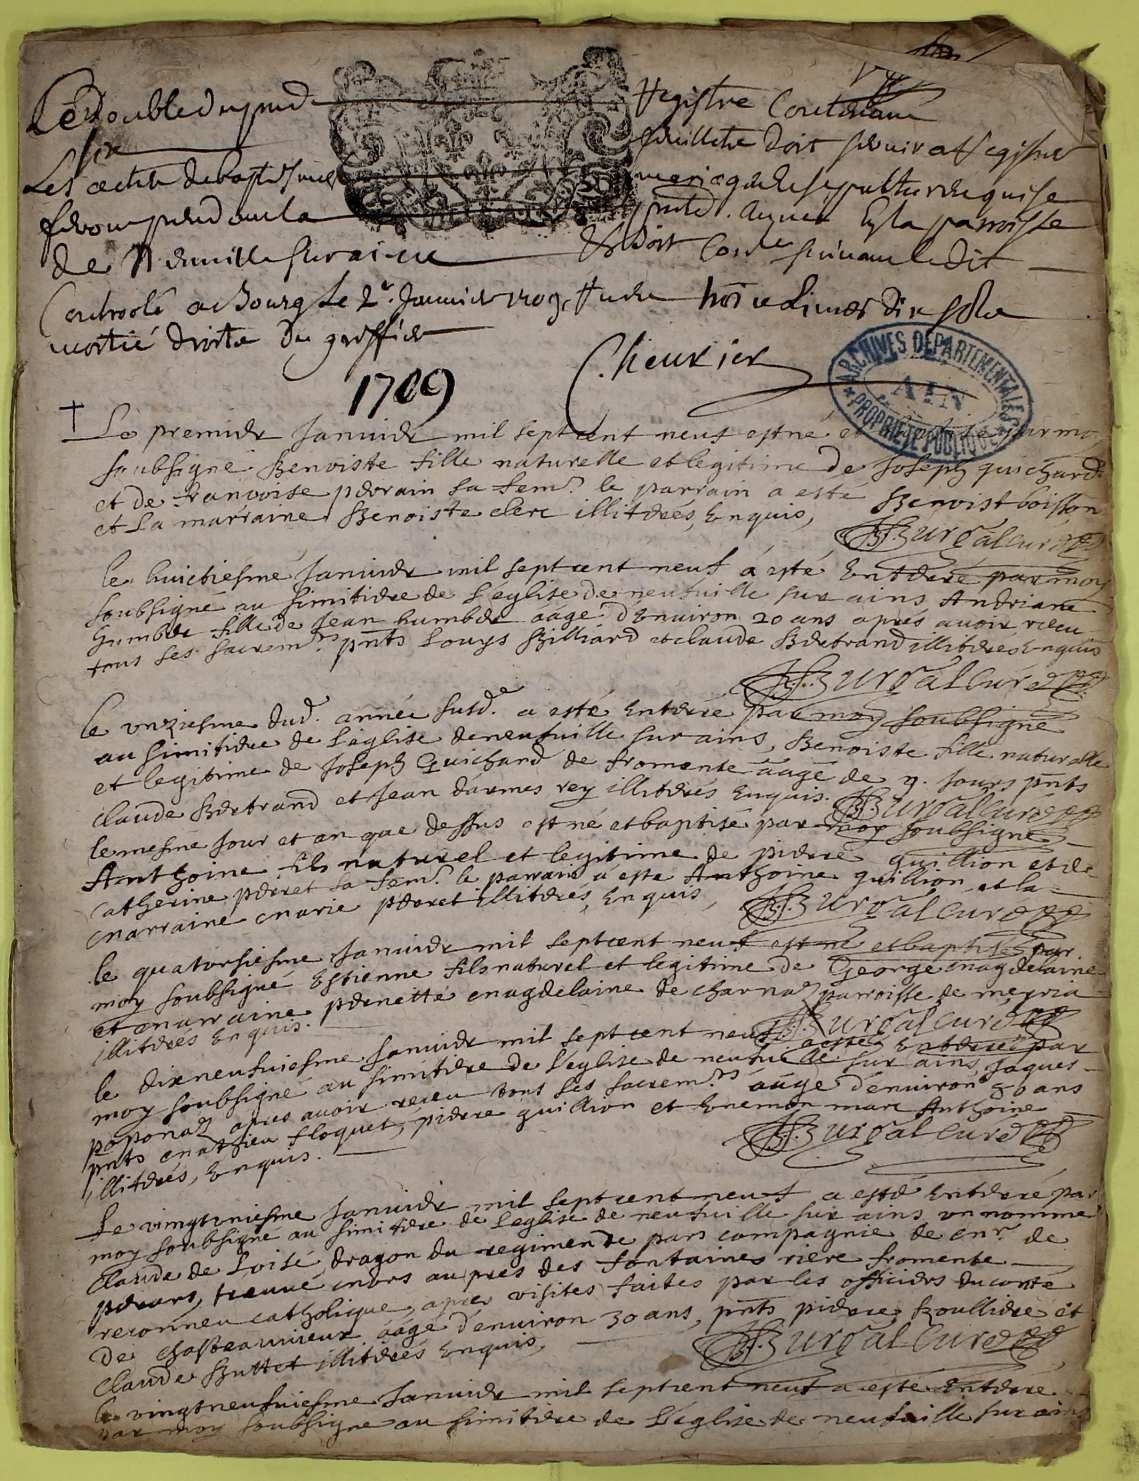 Le double du pnt registre contenant
six feuillets doit servir a regist
Les actes de baptesmes mariages de sepultures qui se
feront pendant la pnte annee En la parroisse
de Neuville sur ains Et doit Conle suivant ledit
Controlé a Bourg le 2e Janvier 1709. Receu trois livres dix sols
moitié droits du greffier
Cheurier
1709
ARCHIVES DÉPARTEMENTALES
AIN
PROPRIÉTÉ PUBLIQUE
Le premier Janvier mil septcent neuf est né et par moy
soubsigné Benoiste fille naturelle et legitime de Joseph quichard
et de francoise perrain sa femr. le parrain a esté Benoist boisson
et La marraine Benoiste clerc illitérés, Enquis,
Burgal curé
le huictiesme Janvier mil septcent neuf á esté Enterré par moy
soubsigné au simitiere de L'église de neufville sur ains Andriane
humbert fille de Jean humbert aágé d'Environ 20 ans aprés avoir receu
tous ses sacrem.ts pnts Louys Billiard et claude Bertrand illitérés Enquis
Burgal curé
le vnziesme dud. année susd.e a esté Enterré par moy soubsigné
au simitiere de L'église de neufville sur ains, Benoiste fille naturelle
et legitime de Joseph Quichard de fromente aagé de 9. jours pnts
claude Bertrand et Jean darmes rey illitérés Enquis. Burgal curé
le mesme jour et an que dessus est né et baptisé par moy soubsigné
Anthoine fils naturel et legitime de pierre quillion et de
catherine perret sa femr. le parain a esté Anthoine quillion et la
marraine marie perret illitérés, Enquis, Burgal curé
le quatorsiesme Janvier mil septcent neuf est né et baptisé par
moy soubsigné Estienne fils naturel et legitime de George magdelaine
et marraine pernette magdelaine de charnaz parroisse de meyria
illitérés Enquis. Burgal curé
le dixneufuiesme Janvier mil septcent neuf a esté Enterré par
moy soubsigné au simitiere de L'eglise de neufville sur ains, Jaques
poponaz apres avoir receu tous ses sacrem.ts aágé d'environ 80 ans
pnts mathieu floquet, pierre quillion et Enemon marc Anthoine
illitérés, Enquis. Burgal curé
Le vingtuniesme Janvier mil septcent neuf a esté Enterré par
moy soubsigné au simitiere de L'eglise de neufville sur ains un nommé
claude de Loisé dragon du regiment de pars compagnie de mr. de
perars, treuvé mors aupres des fontaines riere fromente
reconneu catholique, apres visites faites par les officiers du conte
de chasteauvieux aagé d'environ 30 ans, pnts pierre froullier et
claude Buttet illitérés Enquis, Burgal curé
le vingtneufuiesme Janvier mil septcent neuf a esté Enterré
par moy soubsigné au simitiere de L'église de neufville sur ains